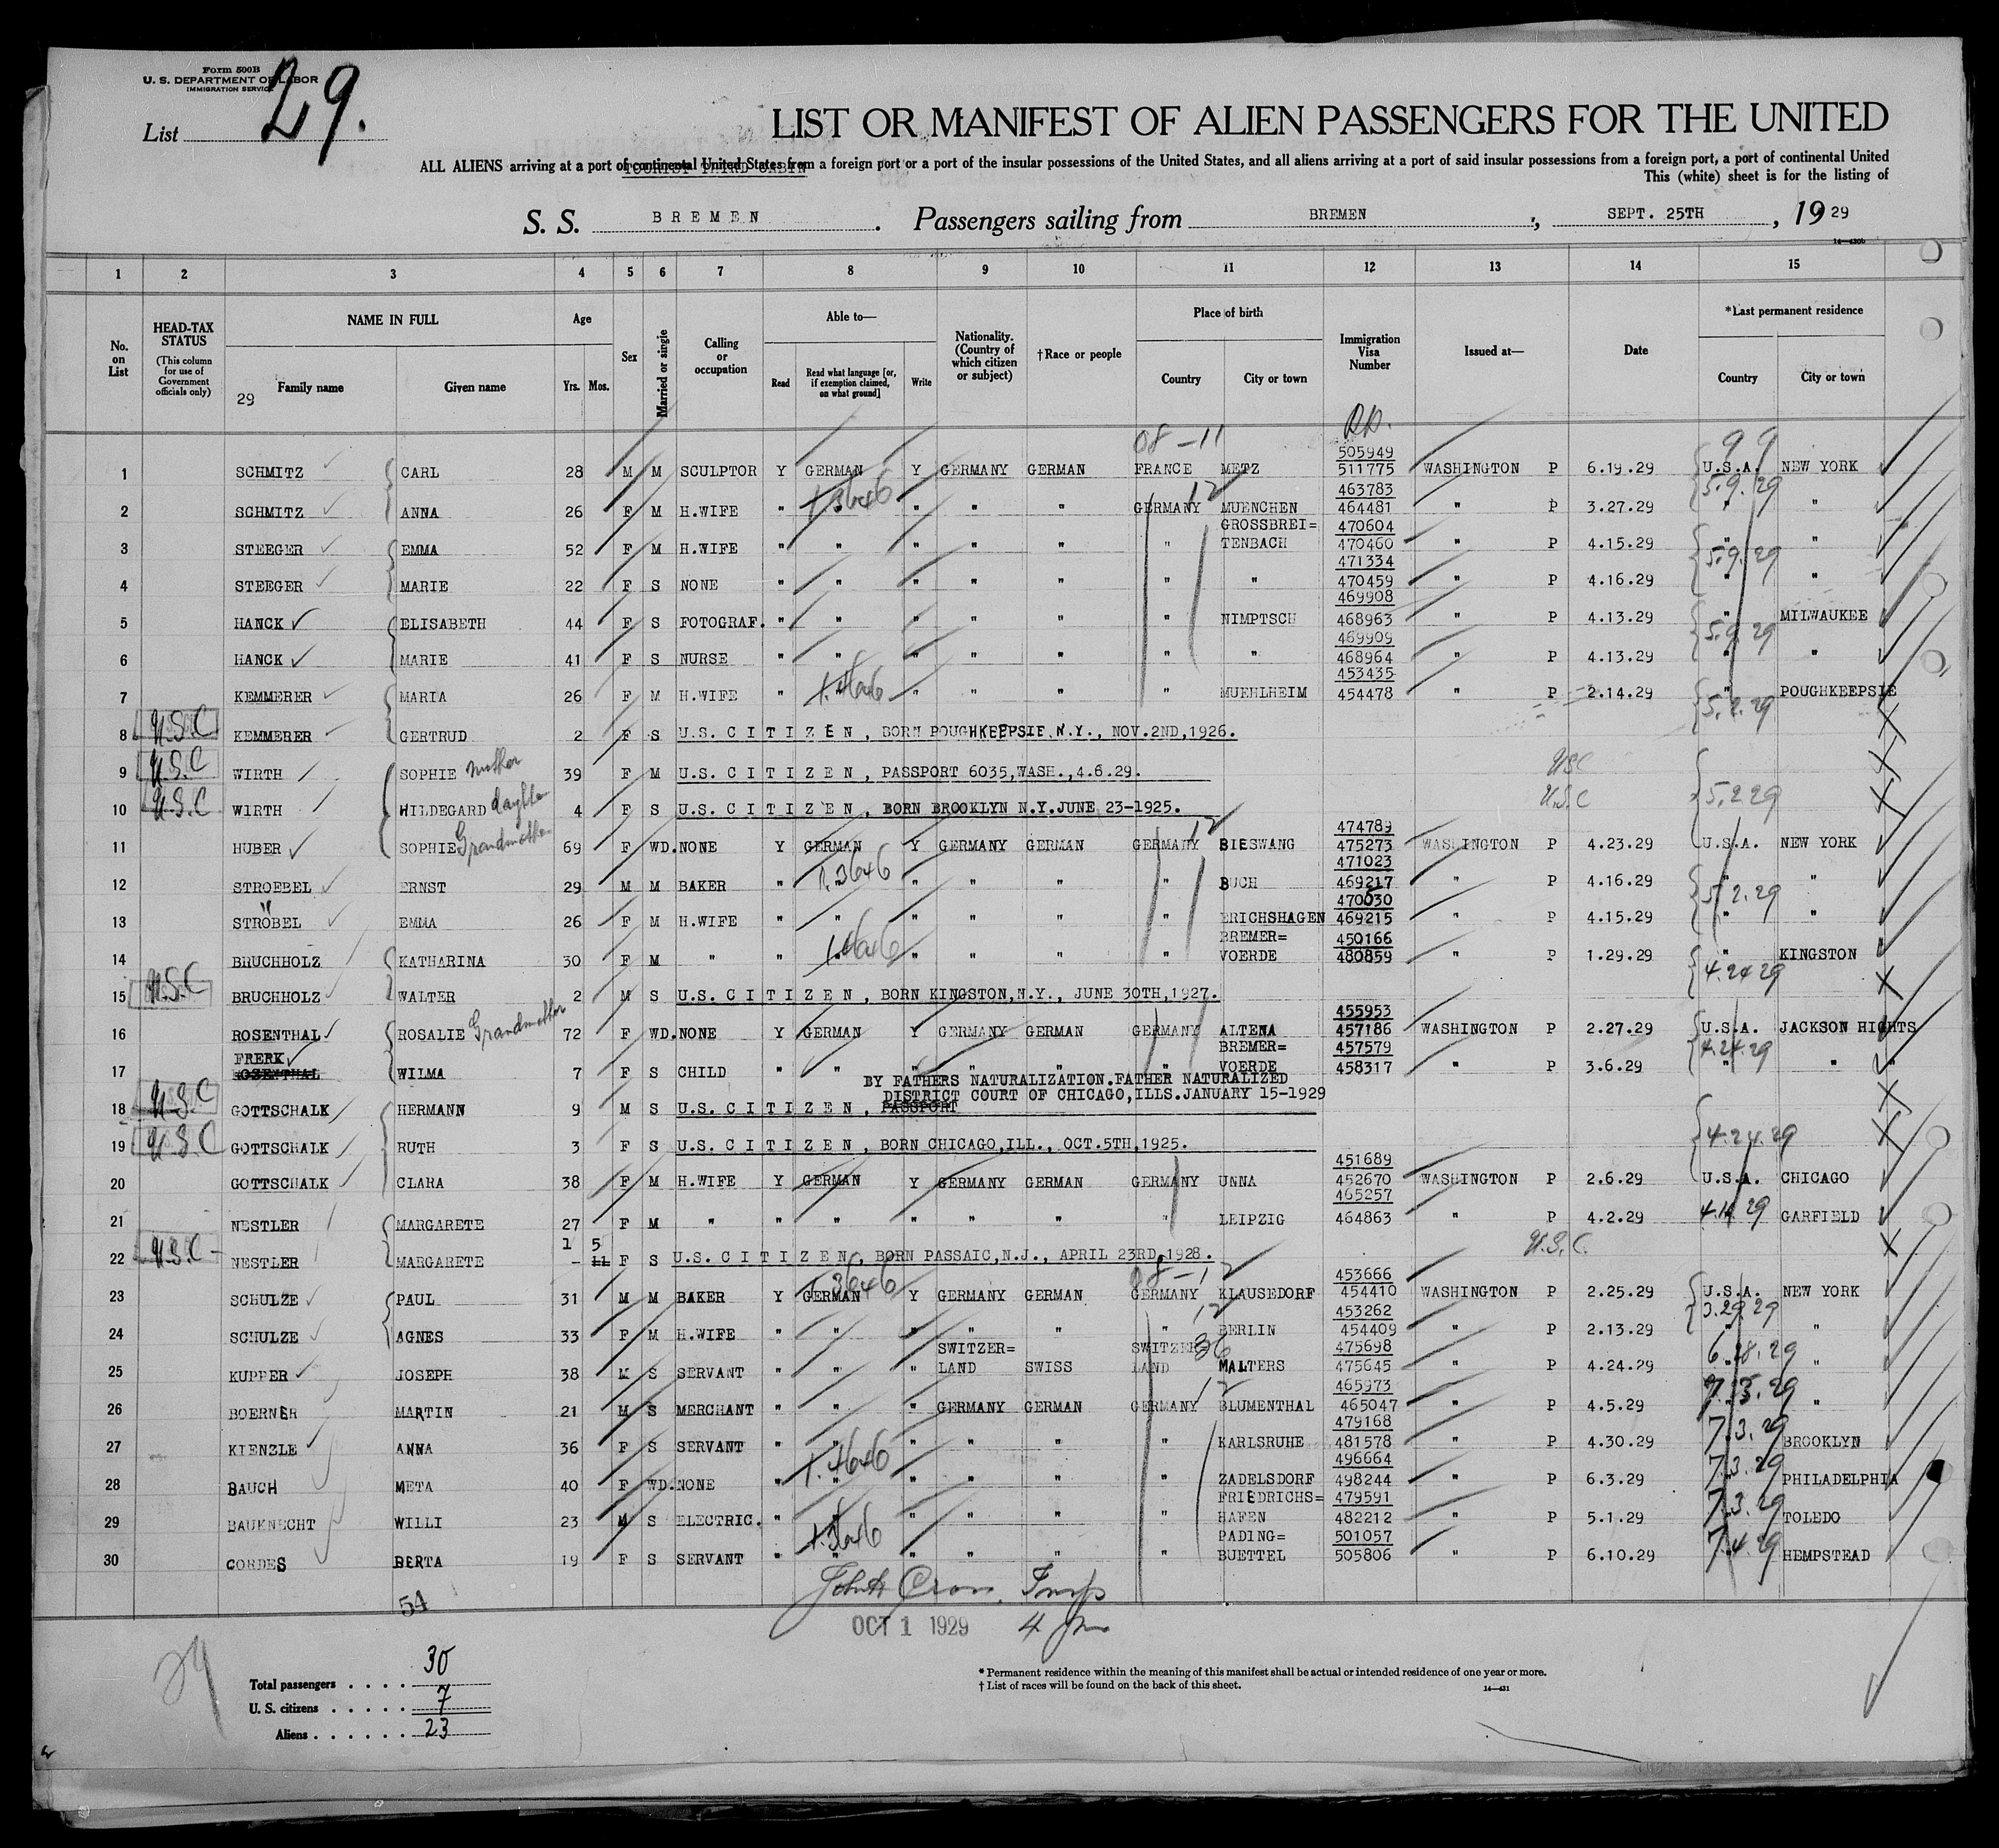 Form 500B
U. S. DEPARTMENT OF LABOR
IMMIGRATION SERVICE
List 29.
LIST OR MANIFEST OF ALIEN PASSENGERS FOR THE UNITED
ALL ALIENS arriving at a port of continental United States from a foreign port or a port of the insular possessions of the United States, and all aliens arriving at a port of said insular possessions from a foreign port, a port of continental United
TOURIST THIRD CABIN
This (white) sheet is for the listing of
S. S. BREMEN . Passengers sailing from BREMEN , SEPT. 25TH , 19 29
14—430b
1 2 3 4 5 6 7 8 9 10 11 12 13 14 15
No. on List
HEAD-TAX STATUS (This column for use of Government officials only)
NAME IN FULL
29 Family name Given name
Age Yrs. Mos.
Sex
Married or single
Calling or occupation
Able to— Read Read what language [or, if exemption claimed, on what ground] Write
Nationality. (Country of which citizen or subject)
†Race or people
Place of birth Country City or town
Immigration Visa Number
Issued at—
Date
*Last permanent residence Country City or town
08-11 99
505949
1 SCHMITZ CARL 28 M M SCULPTOR Y GERMAN Y GERMANY GERMAN FRANCE METZ 511775 WASHINGTON P 6.19.29 U.S.A. NEW YORK
1.3646 12 463783 5.9.29
2 SCHMITZ ANNA 26 F M H.WIFE " " " " GERMANY MUENCHEN 464481 " P 3.27.29 " "
GROSSBREI= 470604
3 STEEGER EMMA 52 F M H.WIFE " " " " " " TENBACH 470460 " P 4.15.29 " "
471334 5.9.29
4 STEEGER MARIE 22 F S NONE " " " " " " " 470459 " P 4.16.29 " "
469908
5 HANCK ELISABETH 44 F S FOTOGRAF. " " " " " " NIMPTSCH 468963 " P 4.13.29 " MILWAUKEE
469909 5.9.29
6 HANCK MARIE 41 F S NURSE " " " " " " " 468964 " P 4.13.29 " "
1.4646 453435
7 KEMMERER MARIA 26 F M H.WIFE " " " " " MUEHLHEIM 454478 " P 2.14.29 POUGHKEEPSIE
5.2.29
8 U.S.C KEMMERER GERTRUD 2 F S U.S. CITIZEN, BORN POUGHKEEPSIE N.Y., NOV.2ND,1926.
9 U.S.C WIRTH SOPHIE mother 39 F M U.S. CITIZEN, PASSPORT 6035,WASH.,4.6.29. USC
10 U.S.C WIRTH HILDEGARD 4 F S U.S. CITIZEN, BORN BROOKLYN N.Y.JUNE 23-1925. U.S.C 5.2.29
12 474789
11 HUBER SOPHIE Grandmother 69 F WD. NONE Y GERMAN Y GERMANY GERMAN GERMANY BIESWANG 475273 WASHINGTON P 4.23.29 U.S.A. NEW YORK
1.3646 471023
12 STROEBEL ERNST 29 M M BAKER " " " " " BUCH 469217 " P 4.16.29 " "
470030 5.2.29
13 STRÖBEL EMMA 26 F M H.WIFE " " " " " " ERICHSHAGEN 469215 " P 4.15.29 " "
1.4646 BREMER= 450166
14 BRUCHHOLZ KATHARINA 30 F M " " " " " " VOERDE 480859 " P 1.29.29 " KINGSTON
4.24.29
15 U.S.C BRUCHHOLZ WALTER 2 M S U.S. CITIZEN, BORN KINGSTON,N.Y., JUNE 30TH,1927.
455953
16 ROSENTHAL ROSALIE Grandmother 72 F WD. NONE Y GERMAN Y GERMANY GERMAN GERMANY ALTENA 457186 WASHINGTON P 2.27.29 U.S.A. JACKSON HIGHTS
FRERK BREMER= 457579 4.24.29
17 WILMA 7 F S CHILD " " " " " " VOERDE 458317 " P 3.6.29 " "
BY FATHERS NATURALIZATION.FATHER NATURALIZED
DISTRICT COURT OF CHICAGO,ILLS.JANUARY 15-1929
18 U.S.C GOTTSCHALK HERMANN 9 M S U.S. CITIZEN, PASSPORT
19 U.S.C GOTTSCHALK RUTH 3 F S U.S. CITIZEN, BORN CHICAGO,ILL., OCT.5TH,1925. 4.24.29
451689
20 GOTTSCHALK CLARA 38 F M H.WIFE Y GERMAN Y GERMANY GERMAN GERMANY UNNA 452670 WASHINGTON P 2.6.29 U.S.A. CHICAGO
465257
21 NESTLER MARGARETE 27 F M " " " " " " " LEIPZIG 464863 " P 4.2.29 GARFIELD
1 5
22 U.S.C NESTLER MARGARETE - 11 F S U.S. CITIZEN, BORN PASSAIC,N.J., APRIL 23RD,1928. U.S.C.
1.3646 08-12 453666
23 SCHULZE PAUL 31 M M BAKER Y GERMAN Y GERMANY GERMAN GERMANY KLAUSEDORF 454410 WASHINGTON P 2.25.29 U.S.A. NEW YORK
12 453262 3.29.29
24 SCHULZE AGNES 33 F M H.WIFE " " " " " " BERLIN 454409 " P 2.13.29 " "
SWITZER= SWITZER= 36 475698 6.28.29
25 KUPPER JOSEPH 38 M S SERVANT " " " LAND SWISS LAND MALTERS 475645 " P 4.24.29 " "
12 465973
26 BOERNER MARTIN 21 M S MERCHANT " " " GERMANY GERMAN GERMANY BLUMENTHAL 465047 " P 4.5.29 "
479168 7.3.29
27 KIENZLE ANNA 36 F S SERVANT " " " " " " KARLSRUHE 481578 " P 4.30.29 BROOKLYN
1.4646 496664 7.3.29
28 BAUCH META 40 F WD. NONE " " " " " " ZADELSDORF 498244 " P 6.3.29 PHILADELPHIA
FRIEDRICHS= 479591 7.3.29
29 BAUKNECHT WILLI 23 M S ELECTRIC. " " " " " " HAFEN 482212 " P 5.1.29 TOLEDO
1.3646 PADING= 501057 7.4.29
30 CORDES BERTA 19 F S SERVANT " " " " " " BUETTEL 505806 " P 6.10.29 HEMPSTEAD
54
OCT 1 1929
Total passengers 30
U. S. citizens 7
Aliens 23
* Permanent residence within the meaning of this manifest shall be actual or intended residence of one year or more.
† List of races will be found on the back of this sheet.
14—431
29